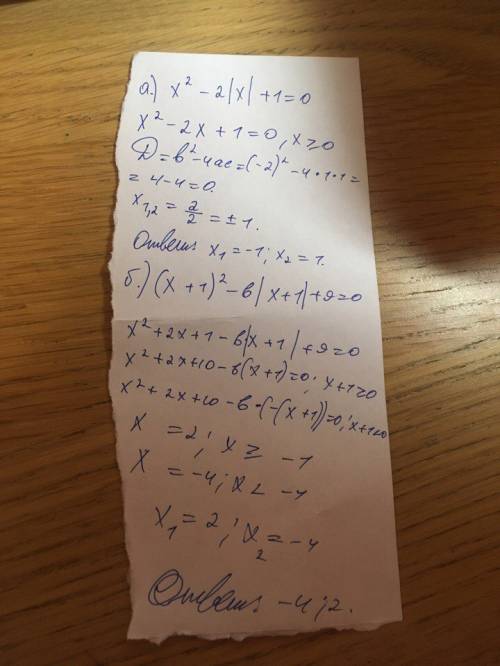 а.) x² - 2|x| + 1 = 0
x² - 2x + 1 = 0, x ≥ 0
D = b² - 4ac = (-2)² - 4 • 1 • 1 =
= 4 - 4 = 0.
x₁,₂ = 2/2 = ± 1.
Ответ: x₁ = -1; x₂ = 1.
б.) (x + 1)² - 6|x + 1| + 9 = 0
x² + 2x + 1 - 6|x + 1| + 9 = 0
x² + 2x + 10 - 6(x + 1) = 0; x + 1 ≥ 0
x² + 2x + 10 - 6 • (-(x + 1)) = 0; x + 1 < 0
x = 2; x ≥ -1
x = -4; x < -1
x₁ = 2; x₂ = -4
Ответ: -4; 2.